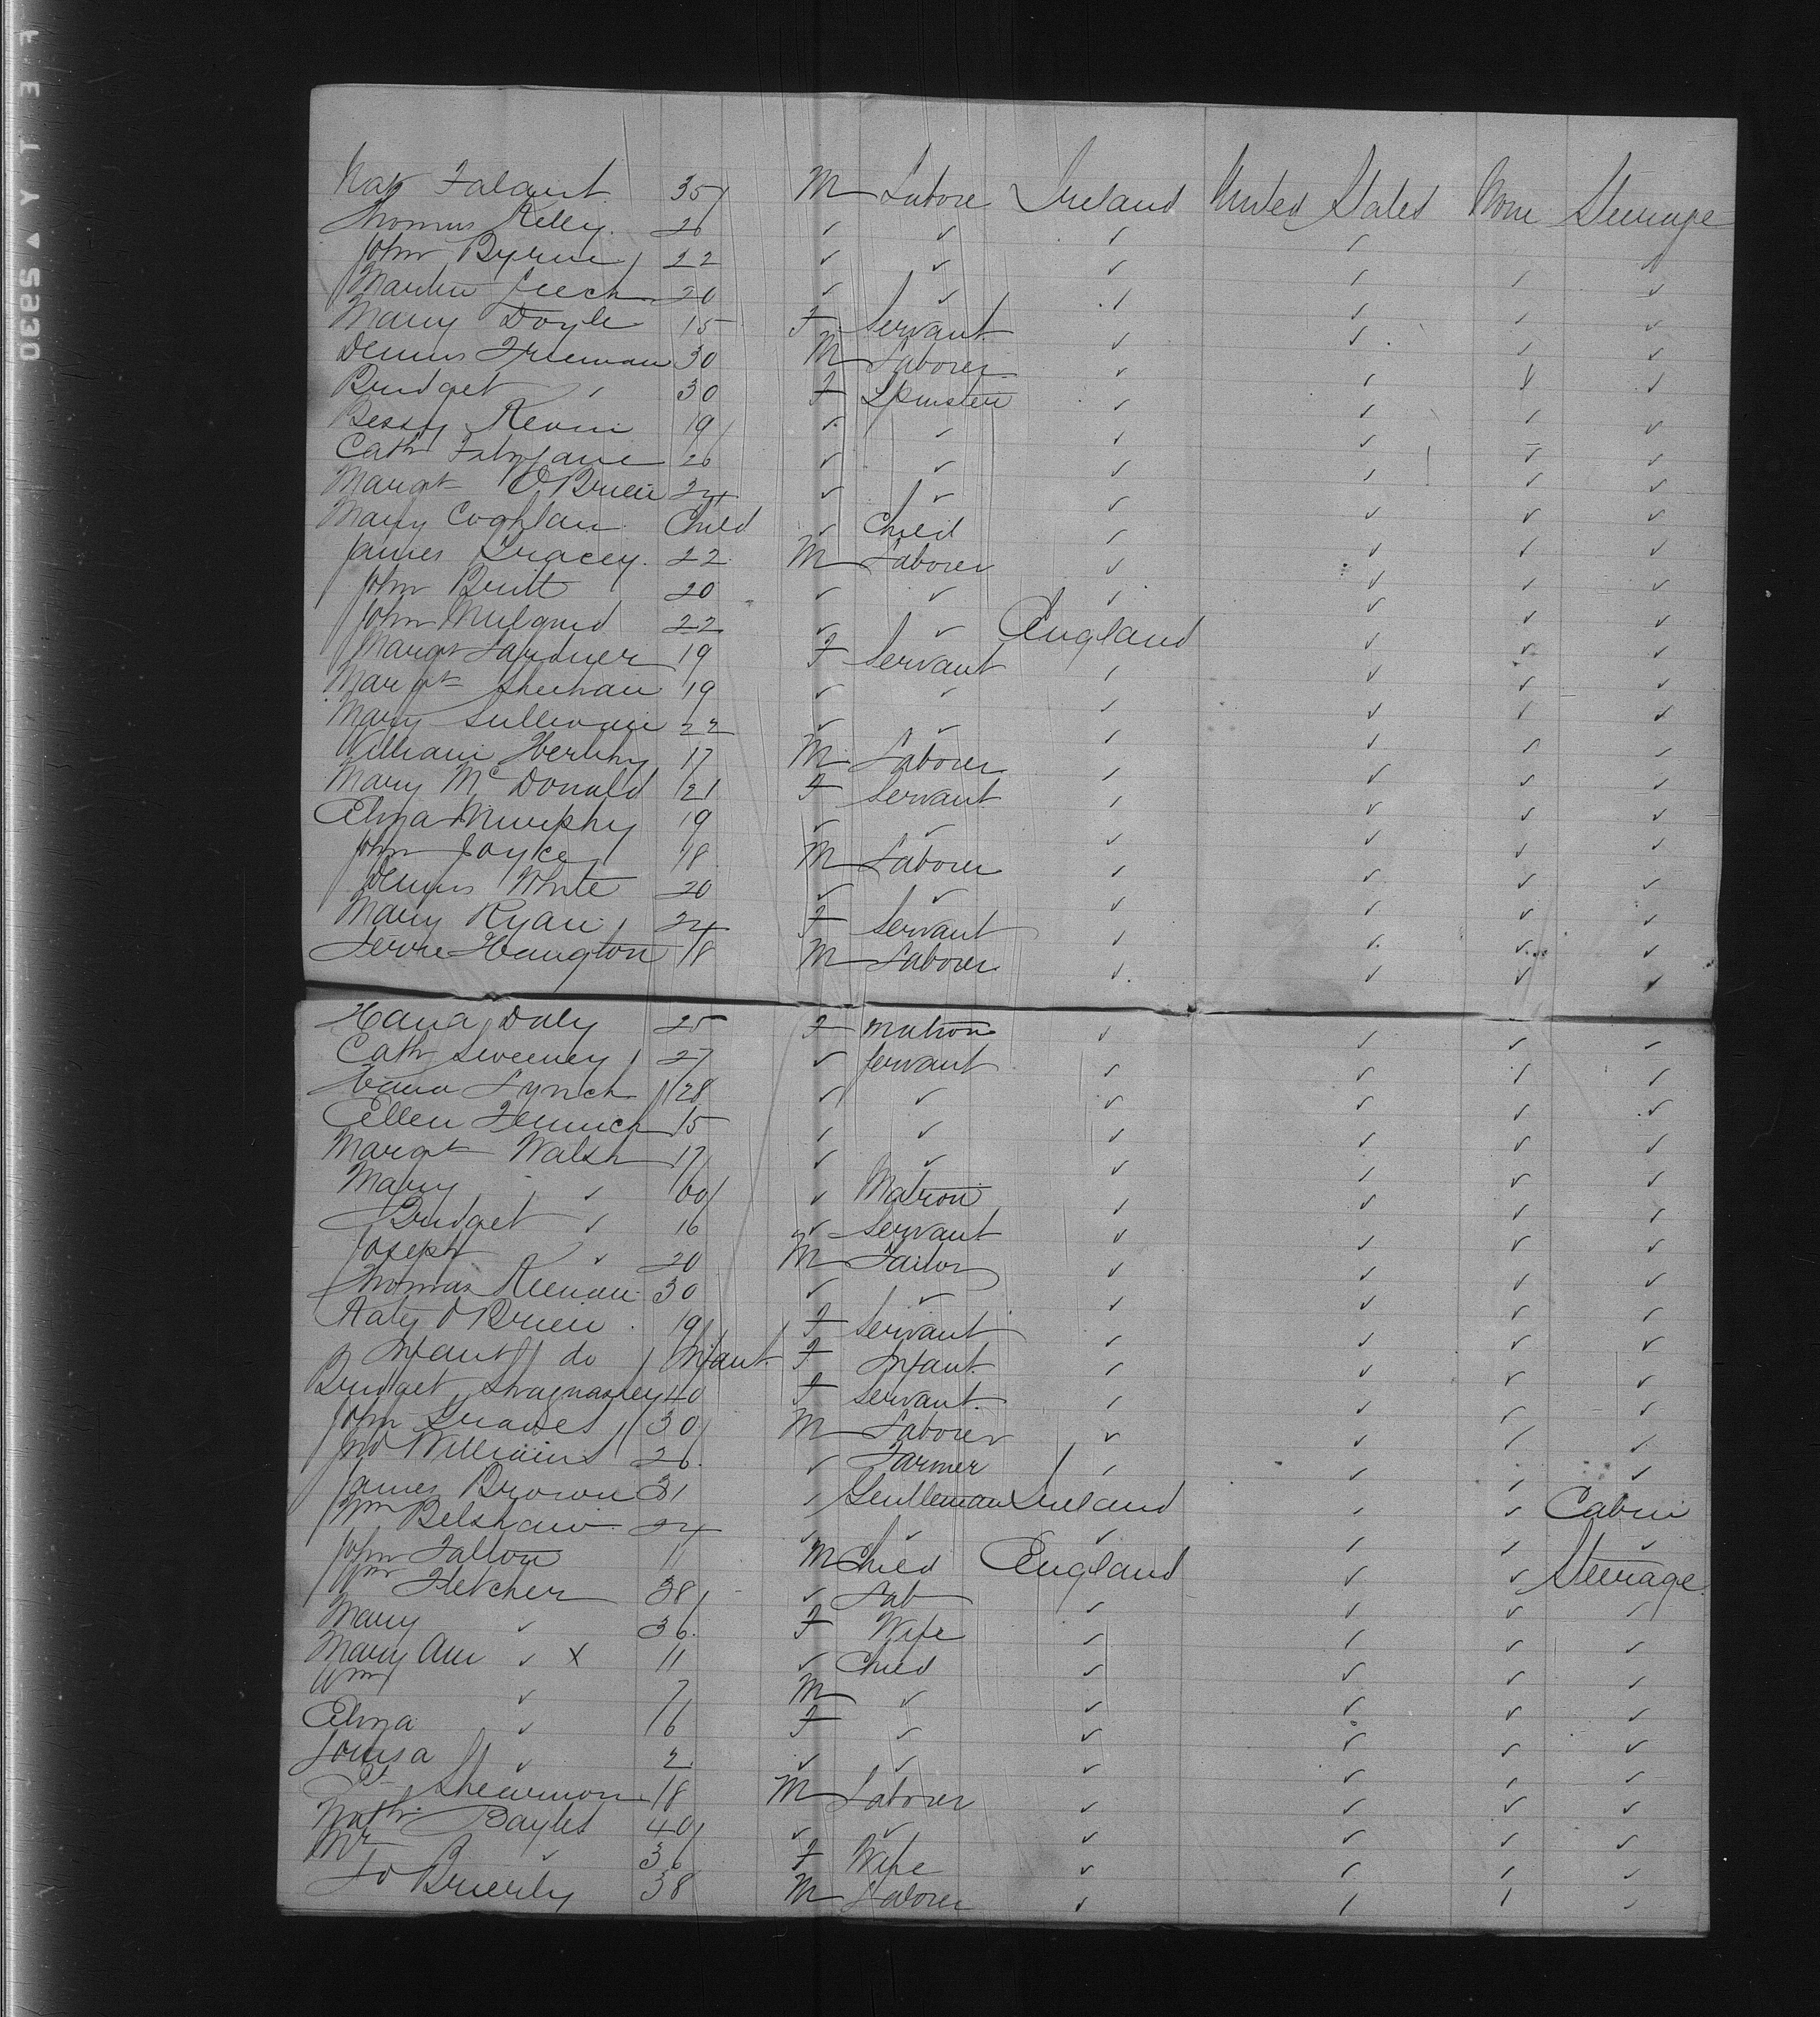 Falaut 35 M Labore Ireland United States None Steerage
Thomas Kelly 26 ✓ ✓ ✓ ✓
John Byrne 22 ✓ ✓ ✓ ✓ ✓ ✓
Martin Leech 20 ✓ ✓ ✓ ✓ ✓ ✓
Mary Doyle 15 F Servant ✓ ✓ ✓ ✓
Dennis Freeman 30 M Laborer ✓ ✓ ✓ ✓
Bridget " 30 F Spinster ✓ ✓ ✓ ✓
Bessy 19 ✓ ✓ ✓ ✓ ✓ ✓
Cath 26 ✓ ✓ ✓ ✓ ✓ ✓
Margt O'Brien 24 ✓ ✓ ✓ ✓ ✓ ✓
Mary Coghlan Child ✓ Child ✓ ✓ ✓ ✓
James Tracey 22 M Laborer ✓ ✓ ✓ ✓
John Britt 20 ✓ ✓ ✓ ✓ ✓ ✓
John 22 ✓ ✓ England ✓ ✓ ✓
Margt Gardner 19 F Servant ✓ ✓ ✓ ✓
Margt Sheehan 19 ✓ ✓ ✓ ✓ ✓ ✓
Mary Sullivan 22 ✓ ✓ ✓ ✓ ✓ ✓
William Herlihy 17 M Laborer ✓ ✓ ✓ ✓
Mary McDonald 21 F Servant ✓ ✓ ✓ ✓
Eliza Murphy 19 ✓ ✓ ✓ ✓ ✓ ✓
John Joyce 18 M Laborer ✓ ✓ ✓ ✓
Dennis White 20 ✓ ✓ ✓ ✓ ✓ ✓
Mary Ryan 24 F Servant ✓ ✓ ✓ ✓
Haugton 18 M Laborer ✓ ✓ ✓ ✓
Hana Daly 25 F Matron ✓ ✓ ✓ ✓
Cath Sweeney 27 ✓ Servant ✓ ✓ ✓ ✓
Hana Lynch 28 ✓ ✓ ✓ ✓ ✓ ✓
Ellen 15 ✓ ✓ ✓ ✓ ✓ ✓
Margt Walsh 17 ✓ ✓ ✓ ✓ ✓ ✓
Mary ✓ 60 ✓ Matron ✓ ✓ ✓ ✓
Bridget ✓ 16 ✓ Servant ✓ ✓ ✓ ✓
Joseph ✓ 20 M Tailor ✓ ✓ ✓ ✓
Thomas Keenan 30 ✓ ✓ ✓ ✓ ✓ ✓
Katy O'Brien 19 F Servant ✓ ✓ ✓ ✓
Infant do Infant F Infant ✓ ✓ ✓ ✓
Bridget 40 F Servant ✓ ✓ ✓ ✓
John Graves 30 M Laborer ✓ ✓ ✓ ✓
Jno Williams 26 ✓ Farmer ✓ ✓ ✓ ✓
James Brown 31 ✓ Gentleman Ireland ✓ ✓ Cabin
Wm Belshaw 24 ✓ ✓ ✓ ✓ ✓ ✓
John Falton 11 M Child England ✓ ✓ Steerage
Wm Fletcher 38 ✓ Lab ✓ ✓ ✓ ✓
Mary ✓ 36 F Wife ✓ ✓ ✓ ✓
Mary Ann ✓ X 11 ✓ Child ✓ ✓ ✓ ✓
Wm ✓ 7 M ✓ ✓ ✓ ✓ ✓
Eliza ✓ 6 F ✓ ✓ ✓ ✓ ✓
Louisa ✓ 2 ✓ ✓ ✓ ✓ ✓ ✓
18 M Laborer ✓ ✓ ✓ ✓
Bayles 40 ✓ ✓ ✓ ✓ ✓ ✓
Mr ✓ 36 F Wife ✓ ✓ ✓ ✓
Brierly 38 M Laborer ✓ ✓ ✓ ✓